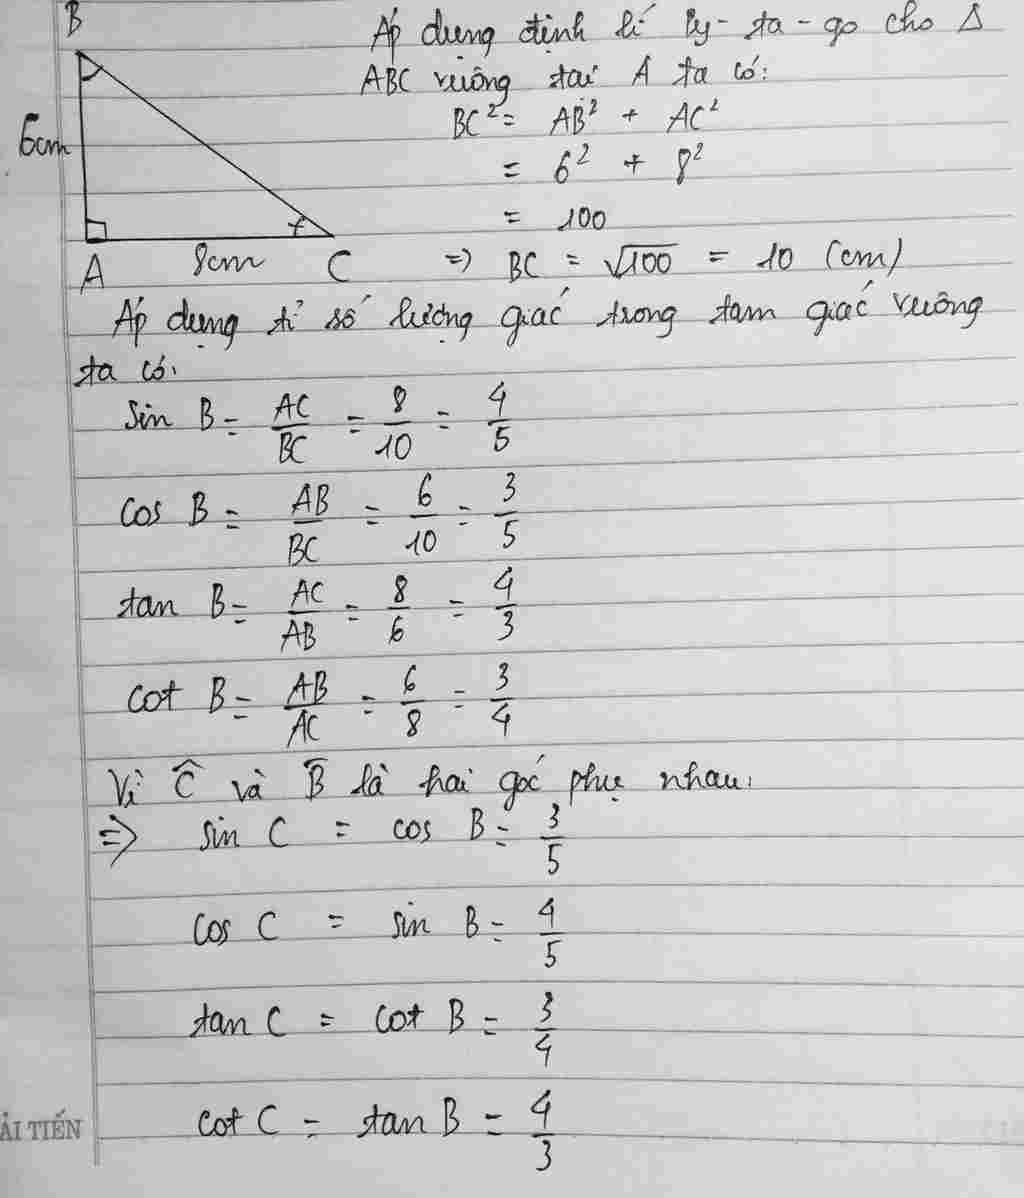 B
Áp dụng định lí Py-ta-go cho Δ
ABC vuông tại A ta có:
6cm
BC² = AB² + AC²
= 6² + 8²
= 100
A 8cm C
=> BC = √100 = 10 (cm)
Áp dụng tỉ số lượng giác trong tam giác vuông
ta có:
Sin B = AC/BC = 8/10 = 4/5
cos B = AB/BC = 6/10 = 3/5
tan B = AC/AB = 8/6 = 4/3
cot B = AB/AC = 6/8 = 3/4
Vì Ĉ và B̂ là hai góc phụ nhau:
=> sin C = cos B = 3/5
cos C = sin B = 4/5
tan C = cot B = 3/4
cot C = tan B = 4/3
ẢI TIẾN